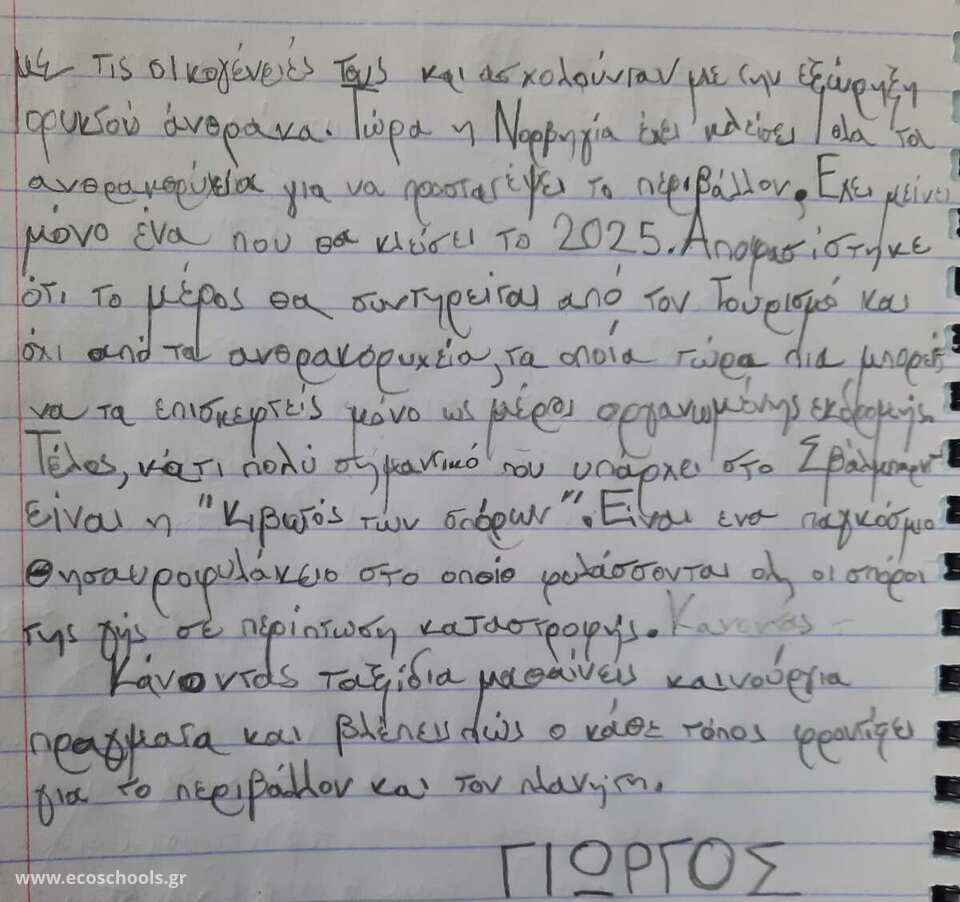 με τις οικογένειές τους και ασχολούνταν με την εξώρηξη
ορυκτού άνθρακα. Τώρα η Νορβηγία έχει κλείσει όλα τα
ανθρακορύχεια για να προστατέψει το περιβάλλον. Έχει μείνει
μόνο ένα που θα κλείσει το 2025. Αποφασίστηκε
ότι το μέρος θα συντηρείται από τον Τουρισμό και
όχι από τα ανθρακορυχεία, τα οποία τώρα πια μπορείς
να τα επισκεφτείς μόνο ως μέρος οργανωμένης εκδρομής.
Τέλος, κάτι πολύ σημαντικό που υπάρχει στο Σβάλμπαρντ
είναι η "Κιβωτός των σπόρων". Είναι ενα παγκόσμιο
θησαυροφυλάκειο στο οποίο φυλάσσονται όλοι οι σπόροι
της γής σε περίπτωση καταστροφής. Κανενας
Κάνοντας ταξίδια μαθαίνεις καινούργια
πραγματα και βλέπεις πώς ο κάθε τόπος φροντίζει
για το περιβάλλον και τον πλανήτη.
ΓΙΩΡΓΟΣ
www.ecoschools.gr